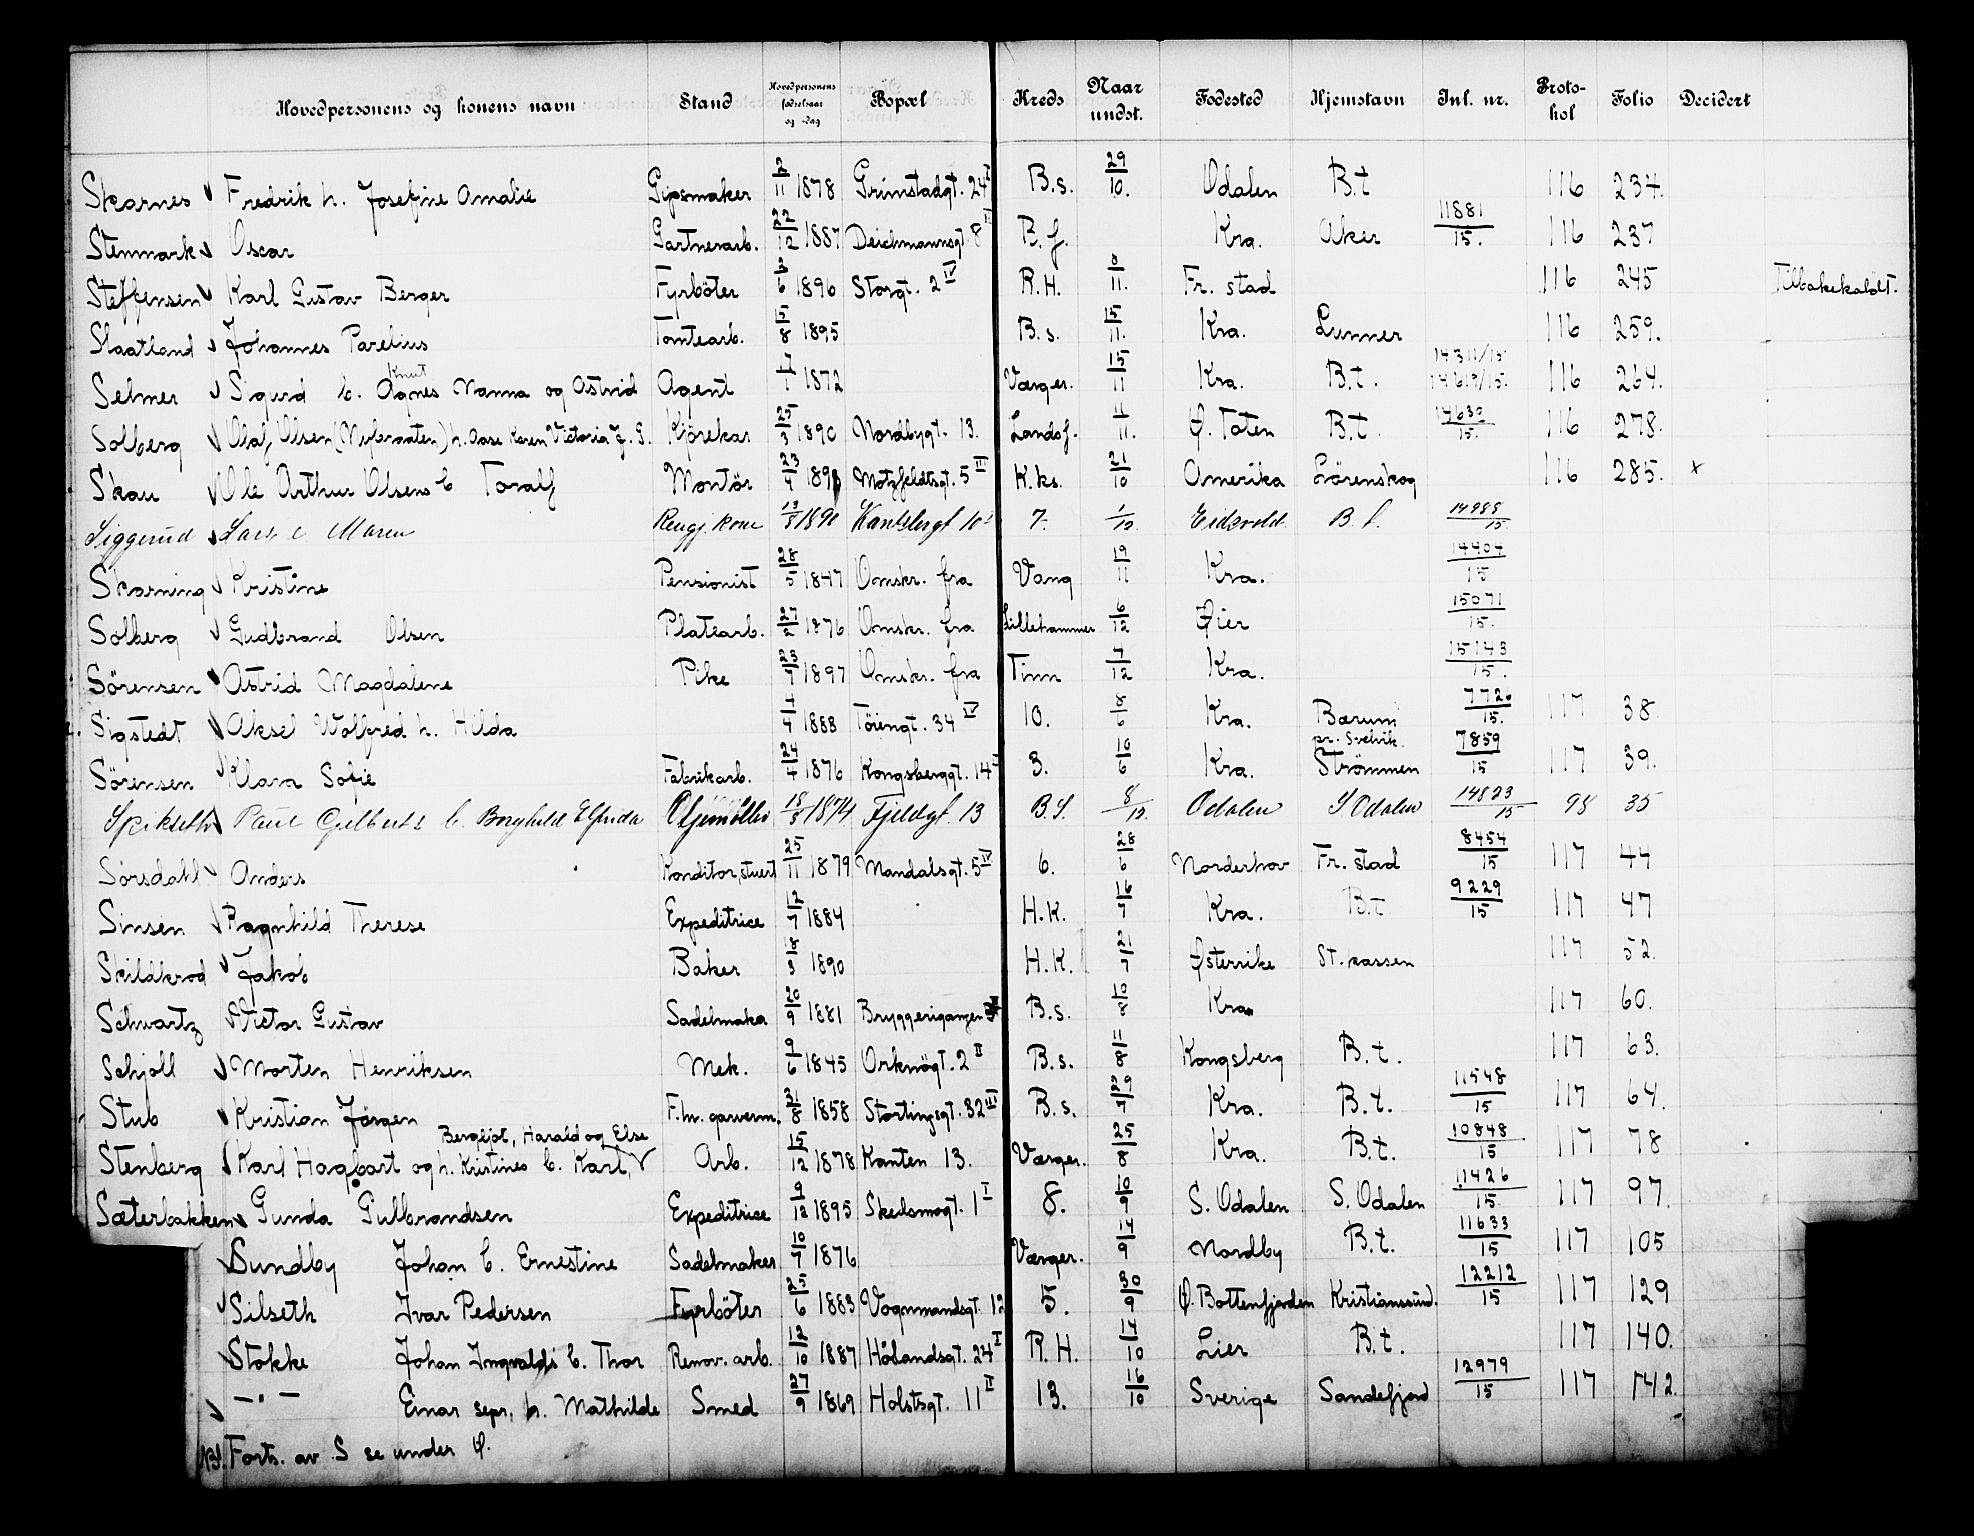 Hovedpersonens og konens navn Stand Hovedpersonens fødselsaar og -dag Bopæl Kreds Naar undst. Fødested Hjemstavn Inl. nr. Protokol Folio Decidert
Skarnes Fredrik h. Josefine Amalie Gipsmaker 2/11 1878 Grimstadgt. 24 I B.s. 29/10. Odalen B.t 116 234.
Stenmark Oscar Gartnerarb. 22/12 1887 Deichmannsgt. 8 II B.f. Kra. Aker 11881/15. 116 237
Steffensen Karl Gustav Berger Fyrböter 3/6 1896 Storgt. 2 IV R.H. 8/11. Fr. stad 116 245 Tilbakekaldt.
Slaatland Johannes Parelius Tomtearb. 15/8 1895 B.s. 15/11. Kra. Lunner 116 259.
Selmer Sigurd b. Knut Agnes Nanna og Astrid Agent 1872 Værger. 15/11 Kra. B.t. 14311/15 14617/15. 116 264.
Solberg Olaf Olsen (Nybraaten) h. Aase Karen Victoria f. S. Kjörekar 25/3 1890 Nordbygt. 13. Landsf. 11/11. Ø. Toten B.t. 14632/15. 116 278.
Skau Ole Arthur Olsens b Toralf Montör 23/4 189 Motzfeldtsgt. 5 III K.ks. 21/10 Amerika Lörenskog 116 285. x
Siggerud Lars c Maren Rengj. kone 13/8 1890 Kantsbergt 10 7. 1/12. Eidsvold. B t. 14988/15
Skarning Kristine Pensionist 28/5 1847 Omskr. fra Vang 19/11 Kra. 14404/15
Solberg Gudbrand Olsen Platearb. 27/2 1876 Omskr. fra Lillehammer 6/12 Øier 15071/15.
Sörensen Astrid Magdalene Pike 23/7 1897 Omskr. fra Tinn 7/12 Kra. 15143/15.
Sigstedt Aksel Wolfred h. Hilda 7/4 1888 Töiengt. 34 IV 10. 8/6 Kra. Bærum 7726/15. 117 38
Sörensen Klara Sofie Fabrikarb. 24/4 1876 Kongsberggt. 14 I 3. 10/6 Kra. pr. Svelvik. Strömmen 7859/15 117 39.
Spikseth Paul Gilberts b. Borghild Elfrida 18/8 1874 Fjeldgt. 13 B.S. 8/12. Odalen S Odalen 14823/15 98 35
Sørsdahl Anders Konditor, stuert 25/11 1879 Mandalsgt. 5 IV 6. 28/6 Norderhov Fr. stad 8454/15 117 44
Sinsen Ragnhild Therese Expeditrice 12/7 1884 H.K. 16/7 Kra. B.t 9229/15 117 47
Skildkrod Jakob Baker 18/3 1890 H.K. 21/7 Østerrike St.kassen 117 52.
Schvartz Victor Gustav Sadelmaker 20/9 1881 Bryggerigangen B.s. 10/8 Kra. 117 60.
Schjöll Morten Henriksen Mek. 9/6 1845 Orknögt. 2 II B.s. 11/8 Kongsberg B.t. 117 63.
Stub Kristian Jörgen F.hv. garverm. 31/8 1858 Stortingsgt. 32 III B.s. 29/7 Kra. B.t. 11548/15 117 64.
Bergljot, Harald og Else
Stenberg Karl Hagbart og h. Kristines b. Karl, Arb. 15/12 1878 Kanten 13. Værger. 25/8 Kra. B.t. 10848/15 117 78
Sæterbakken Gunda Gulbrandsen Expeditrice 9/12 1895 Skedsmogt. 1 I 8. 10/9 S. Odalen S. Odalen 11426/15. 117 97.
Sundby Johan b. Ernestine Sadelmaker 10/7 1876 Værger. 14/9 Nordby B.t. 11633/15 117 105
Silseth Ivar Pedersen Fyrböter 25/6 1883 Vognmandsgt. 12 5. 30/9 Ø. Bottenfjorden Kristianssund. 12212/15 117 129
Stokke Johan Ingvalds b. Thor Renov. arb. 12/10 1887 Hölandsgt. 24 I R.H. 14/10 Lier B.t. 117 140.
— " — Einar sepr. h. Mathilde Smed 27/9 1869 Holstsgt. 11 II 13. 16/10 Sverige Sandefjord 12979/15 117 142.
NB. Forts. av S se under Ø.